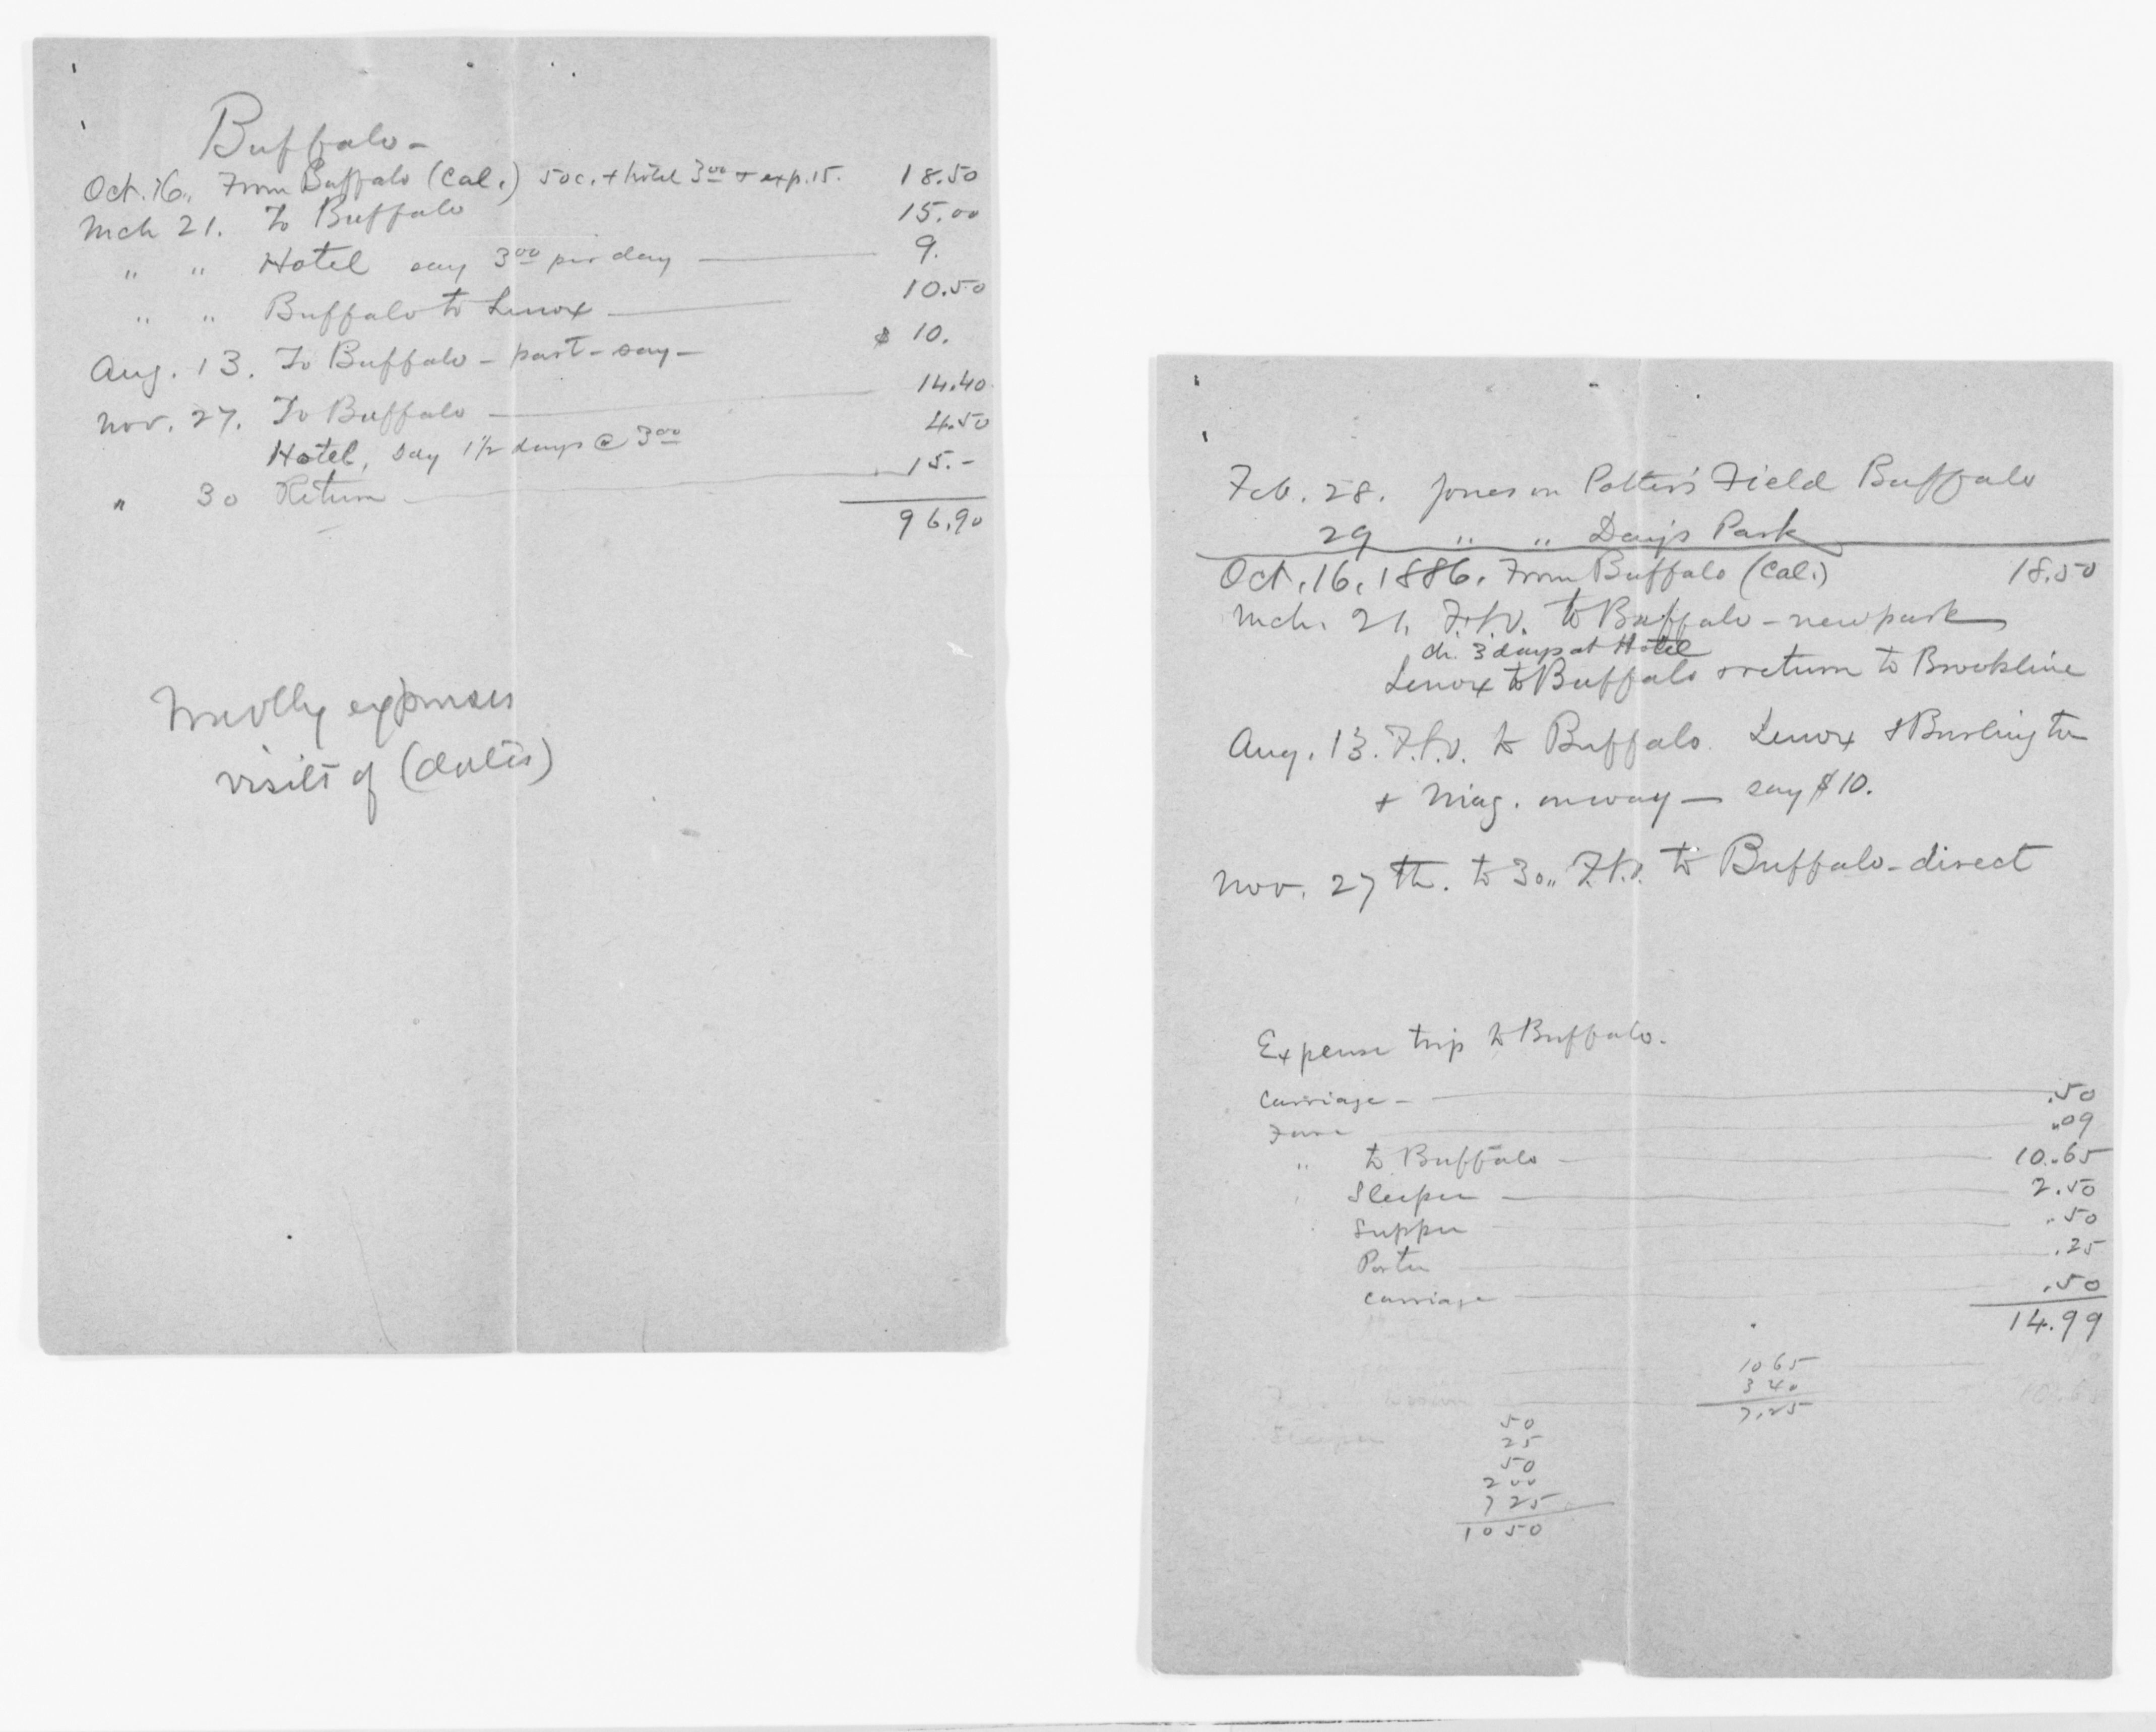 Buffalo -
Oct. 16. From Buffalo (Cal.) 50c. + hotel 3.00 + exp. 15. 18.50
Mch 21. To Buffalo 15.00
" " Hotel say 3.00 per day 9.
" " Buffalo to Lenox 10.50
Aug. 13. To Buffalo - part - say - $ 10.
Nov. 27. To Buffalo 14.40
Hotel, say 1 1/2 days @ 3.00 4.50
" 30 Return 15.-
96.90
expenses
visits of (dates)
Feb. 28. Jones on Potter's Field Buffalo
29 " " Day's Park
Oct. 16, 1886. From Buffalo (Cal.) 18.50
Mch. 21. to Buffalo - new park
ch. 3 days at Hotel
Lenox to Buffalo & return to Brookline
Aug. 13. to Buffalo. Lenox & Burlington
+ Niag. on way - say $10.
Nov. 27th. to 30" to Buffalo - direct
Expense trip to Buffalo.
Carriage - .50
Fare .09
" to Buffalo 10.65
Sleeper 2.50
Supper .50
Porter .25
Carriage .50
14.99
1065
340
7.25
50
25
50
200
725
1050